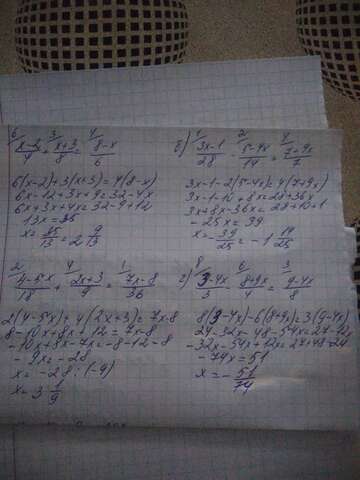 6 3 4
x-2/4 + x+3/8 = 8-x/6
6(x-2)+3(x+3)=4(8-x)
6x-12+3x+9=32-4x
6x+3x+4x=32-9+12
13x=35
x=35/13=2 9/13
б) 1 2 4
3x-1/28 - 5-4x/14 = 7+9x/7
3x-1-2(5-4x)=4(7+9x)
3x-1-10+8x=28+36x
3x+8x-36x=28+10+1
-25x=39
x=-39/25=-1 14/25
2 4 1
4-5x/18 + 2x+3/9 = 7x-8/36
2(4-5x)+4(2x+3)=7x-8
8-10x+8x+12=7x-8
-10x+8x-7x=-8-12-8
-9x=-28
x=-28:(-9)
x=3 1/9
г) 8 6 3
3-4x/3 - 8+9x/4 = 9-4x/8
8(3-4x)-6(8+9x)=3(9-4x)
24-32x-48-54x=27-12x
-32x-54x+12x=27+48-24
-74x=51
x=-51/74